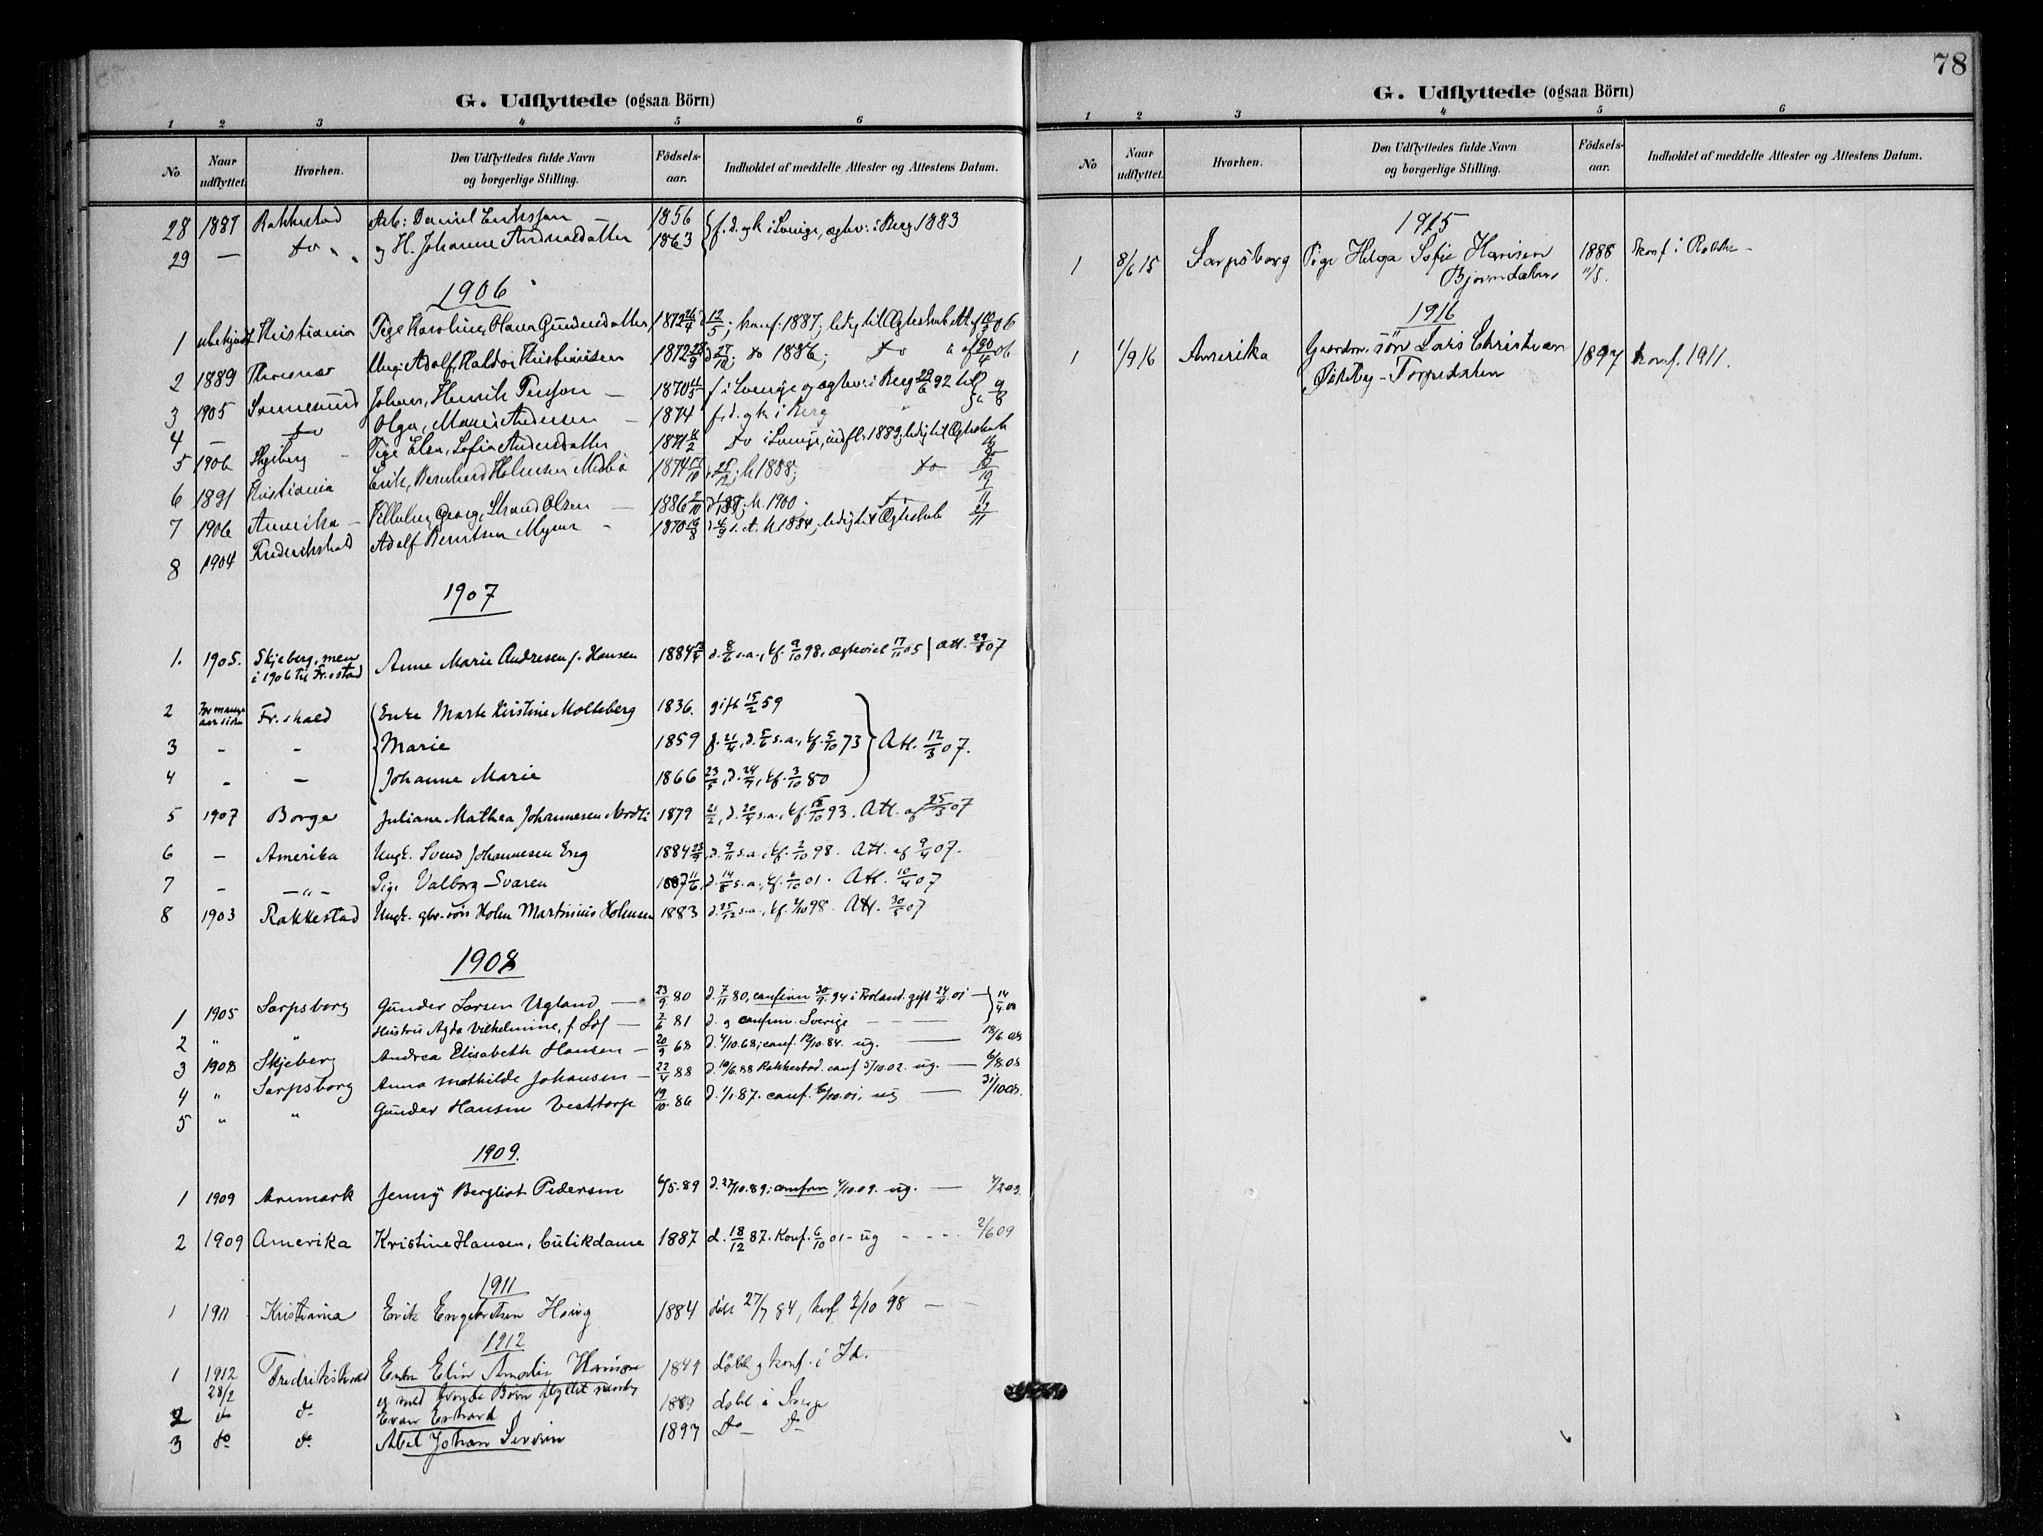 78
G. Udflyttede (ogsaa Börn)
1 2 3 4 5 6
No Naar udflyttet. Hvorhen. Den Udflyttedes fulde Navn og borgerlige Stilling. Födsels-aar. Indholdet af meddelte Attester og Attestens Datum.
28 1887 Rakkestad Arb: Daniel Eriksson 1856 f. d. og k i Sverige, ægtev: i Berg 1883
29 — do " " og H. Johanne Andreasdatter 1863
1906
1 ubekjendt Kristiania Pige Karoline, Olava Gundersdatter 1872 12/5; konf: 1887; ledig til Ægteskab
2 1889 Ungk Adolf Haldor Kristiansen 1872 do 1886; do
3 1905 Sannesund Johan, Henrik Persson — 1870 f i Sverige og ægtev: i Berg 92
4 — do Olga, Marie Andersen — 1874 f. d. og k i Berg
5 1906 Skjeberg – Pige Elsa, Sofie Andersdatter 1871 do i Sverige, indfl: 1889; ledig til Ægteskab
6 1891 Kristiania Erik, Bernhard 1874 k 1888; do
7 1906 Amerika – Vilhelm, Georg, Strand Olsen — 1886 k. 1900
8 1904 Frederikshald Adolf Berntsen Myrer 1870 k 1884; ledig til Ægteskab
1907
1. 1905. Skjeberg, men Anne Marie Andresen f. Hansen 1884 d. 8/6 s.a., kf. 9/10 98, ægteviet 17/11 05 Att. 07
i 1906 til Fr.stad
2 For mange aar siden Fr.shald Enke Marte Kirstine Molteberg 1836. gift 15/2 59
3 – – Marie 1859 f. 21/4, d. 5/6 s.a., kf. 5/10 73 Att. 12/3 07.
4 – – Johanne Marie 1866 23/5, d. kf. 3/10 80
5 1907 Borge Juliane Mathea Johannesen 1879 21/2, d. 20/4 s.a., kf. 15/10 93. Att. af 25/3 07
6 – Amerika Ungk. Svend Johannesen Eng 1884 d. 9/11 s.a. kf. 2/10 98. Att. af 9/4 07.
7 – – " – Pige Valborg Svaren 1887 11/6, d. 14/8 s.a., kf. 6/10 01. Att. 10/4 07
8 1903 Rakkestad Ungk. gbr.søn Holm Martinius Holmsen 1883 d. 25/12 s.a., kf. 2/10 98. Att. 30/5 07
1908
1 1905 Sarpsborg Gunder Larsen Ugland — 23/9 80 d. 7/11 80, confirm 30/9. 94 i gift 24/11. 01 — 14/4. 08
2 " " Hustru Agda Vilhelmine, f. — 2/6 81 d. og confirm. Sverige — — —
3 1908 Skjeberg Andrea Elisabeth Hansen — 20/9 68 d. 4/10. 68; conf. 12/10. 84. ug. — 18/6. 08
4 " Sarpsborg Anna Mathilde Johansen — 22/4 88 d. 10/6. 88 Rakkestad. conf 5/10. 02. ug. — 6/8. 08
5 " " Gunder Hansen Vesttorp 19/10. 86 d. 1/1. 87. conf. 6/10. 01; ug — 31/10 08.
1909.
1 1909 Aremark Jenny Bergliot Pedersen 6/5. 89 d. 27/10. 89; confirm 4/10. 09. ug. —
2 1909 Amerika Kristine Hansen, Butikdame 1887 d. 18/12 87. Konf. 6/10 01 – ug - - - - 2/6 09
1911
1 1911 Kristiania Erik Engebretsen 1884 døbt 27/7 84, konf 2/10 98 —
1912
1 1912 28/2 Fredrikshald Enke Elin Amalie Hansen 1849 døbt og konf. i Id.
og med hvende Børn flyttet
2 do do Evan Erhard 1889 døbt i Sverige
3 do do Abel Johan Severin 1893 Do Do
G. Udflyttede (ogsaa Börn)
1 2 3 4 5 6
No Naar udflyttet. Hvorhen. Den Udflyttedes fulde Navn og borgerlige Stilling. Födsels-aar. Indholdet af meddelte Attester og Attestens Datum.
1915
1 8/6 15 Sarpsborg Pige Helga Sofie Hansen 1888 konf i Rakke –
11/5.
1916
1 1/9 16 Amerika Gaardm. søn Lars Christian 1897 konf. 1911.
Østeby – Torpedalen